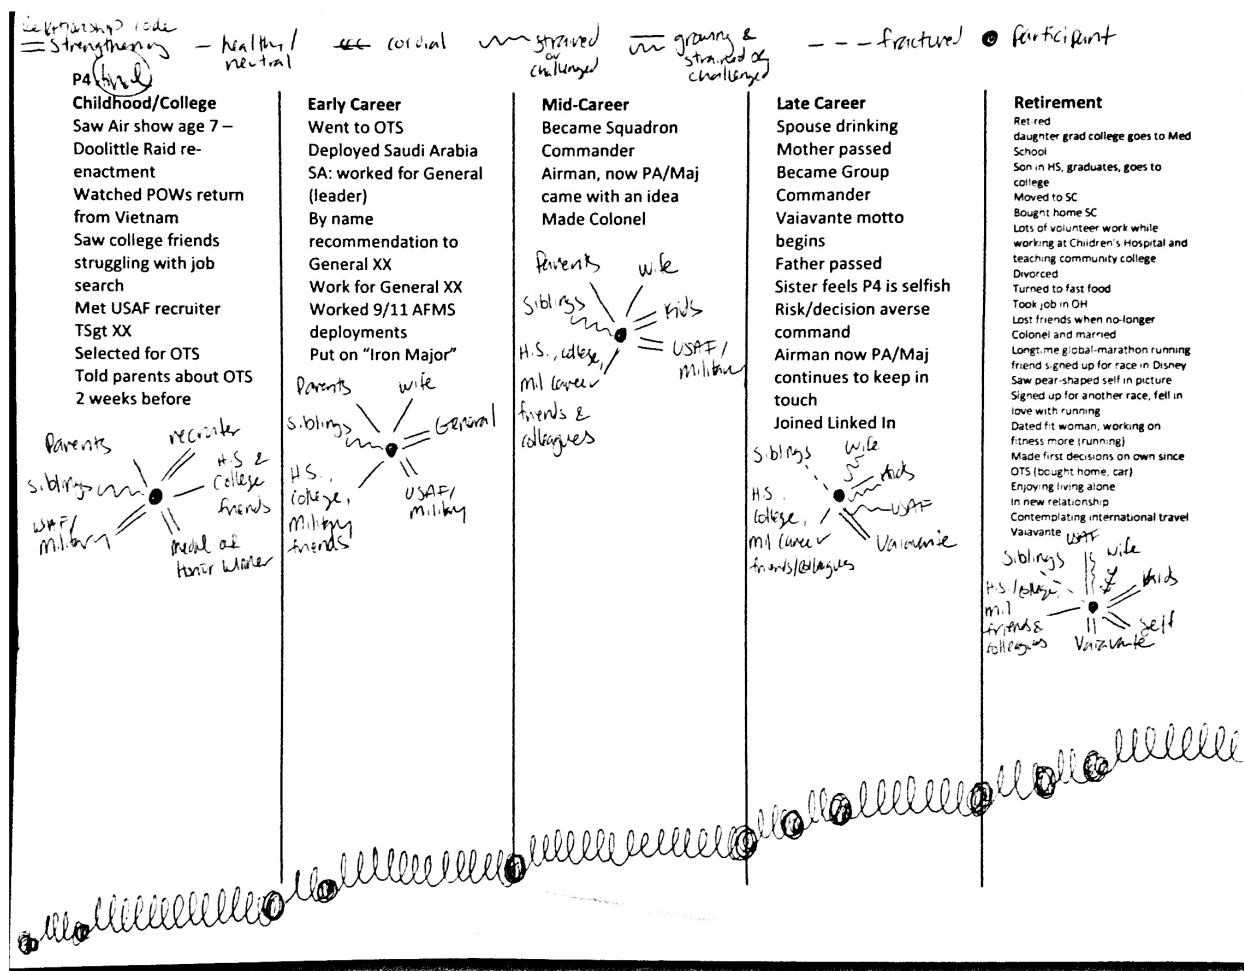 Relationship code
= Strengthening
- healthy/
neutral
cordial
strained
or
challenged
growing &
strained or
challenged
--- fractured
Participant
P4 final
Childhood/College
Saw Air show age 7 –
Doolittle Raid re-
enactment
Watched POWs return
from Vietnam
Saw college friends
struggling with job
search
Met USAF recruiter
TSgt XX
Selected for OTS
Told parents about OTS
2 weeks before
Parents
recruiter
siblings
H.S. &
College
friends
USAF/
Military
Medal of
Honor Winner
Early Career
Went to OTS
Deployed Saudi Arabia
SA: worked for General
(leader)
By name
recommendation to
General XX
Work for General XX
Worked 9/11 AFMS
deployments
Put on “Iron Major”
Parents
wife
siblings
General
H.S.,
college,
Military
friends
USAF/
Military
Mid-Career
Became Squadron
Commander
Airman, now PA/Maj
came with an idea
Made Colonel
Parents
wife
siblings
Kids
USAF/
Military
H.S., college,
mil career
friends &
colleagues
Late Career
Spouse drinking
Mother passed
Became Group
Commander
Vaiavante motto
begins
Father passed
Sister feels P4 is selfish
Risk/decision averse
command
Airman now PA/Maj
continues to keep in
touch
Joined Linked In
siblings
wife
Kids
USAF
Vaiavante
H.S.,
college,
mil career
friends/colleagues
Retirement
Retired
daughter grad college goes to Med
School
Son in HS, graduates, goes to
college
Moved to SC
Bought home SC
Lots of volunteer work while
working at Children's Hospital and
teaching community college
Divorced
Turned to fast food
Took job in OH
Lost friends when no-longer
Colonel and married
Longtime global-marathon running
friend signed up for race in Disney
Saw pear-shaped self in picture
Signed up for another race, fell in
love with running
Dated fit woman, working on
fitness more (running)
Made first decisions on own since
OTS (bought home, car)
Enjoying living alone
In new relationship
Contemplating international travel
Vaiavante
USAF
siblings
wife
Kids
self
Vaiavante
H.S./college,
mil
friends &
colleagues